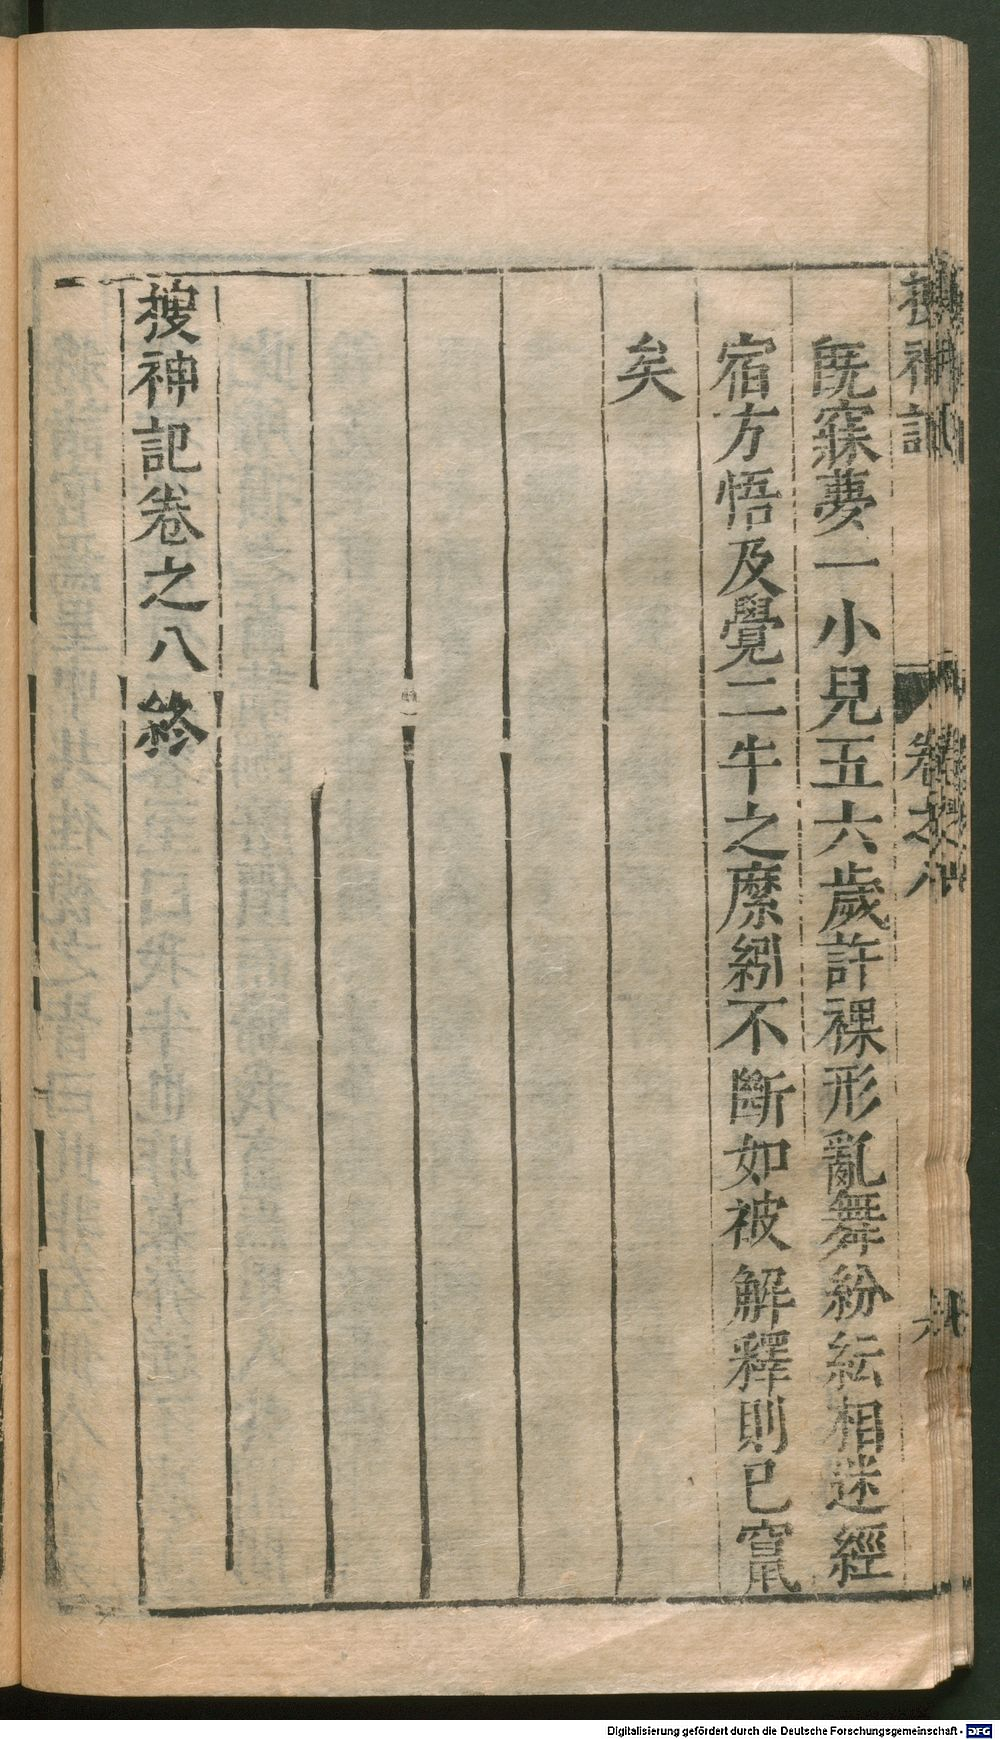 既寐夢一小兒五六歲許裸形亂舞紛紜相迷經
宿方悟及覺二牛之縻紖不斷如被解釋則已竄
矣
搜神記卷之八終
搜神記
卷之八
Digitalisierung gefördert durch die Deutsche Forschungsgemeinschaft - DFG